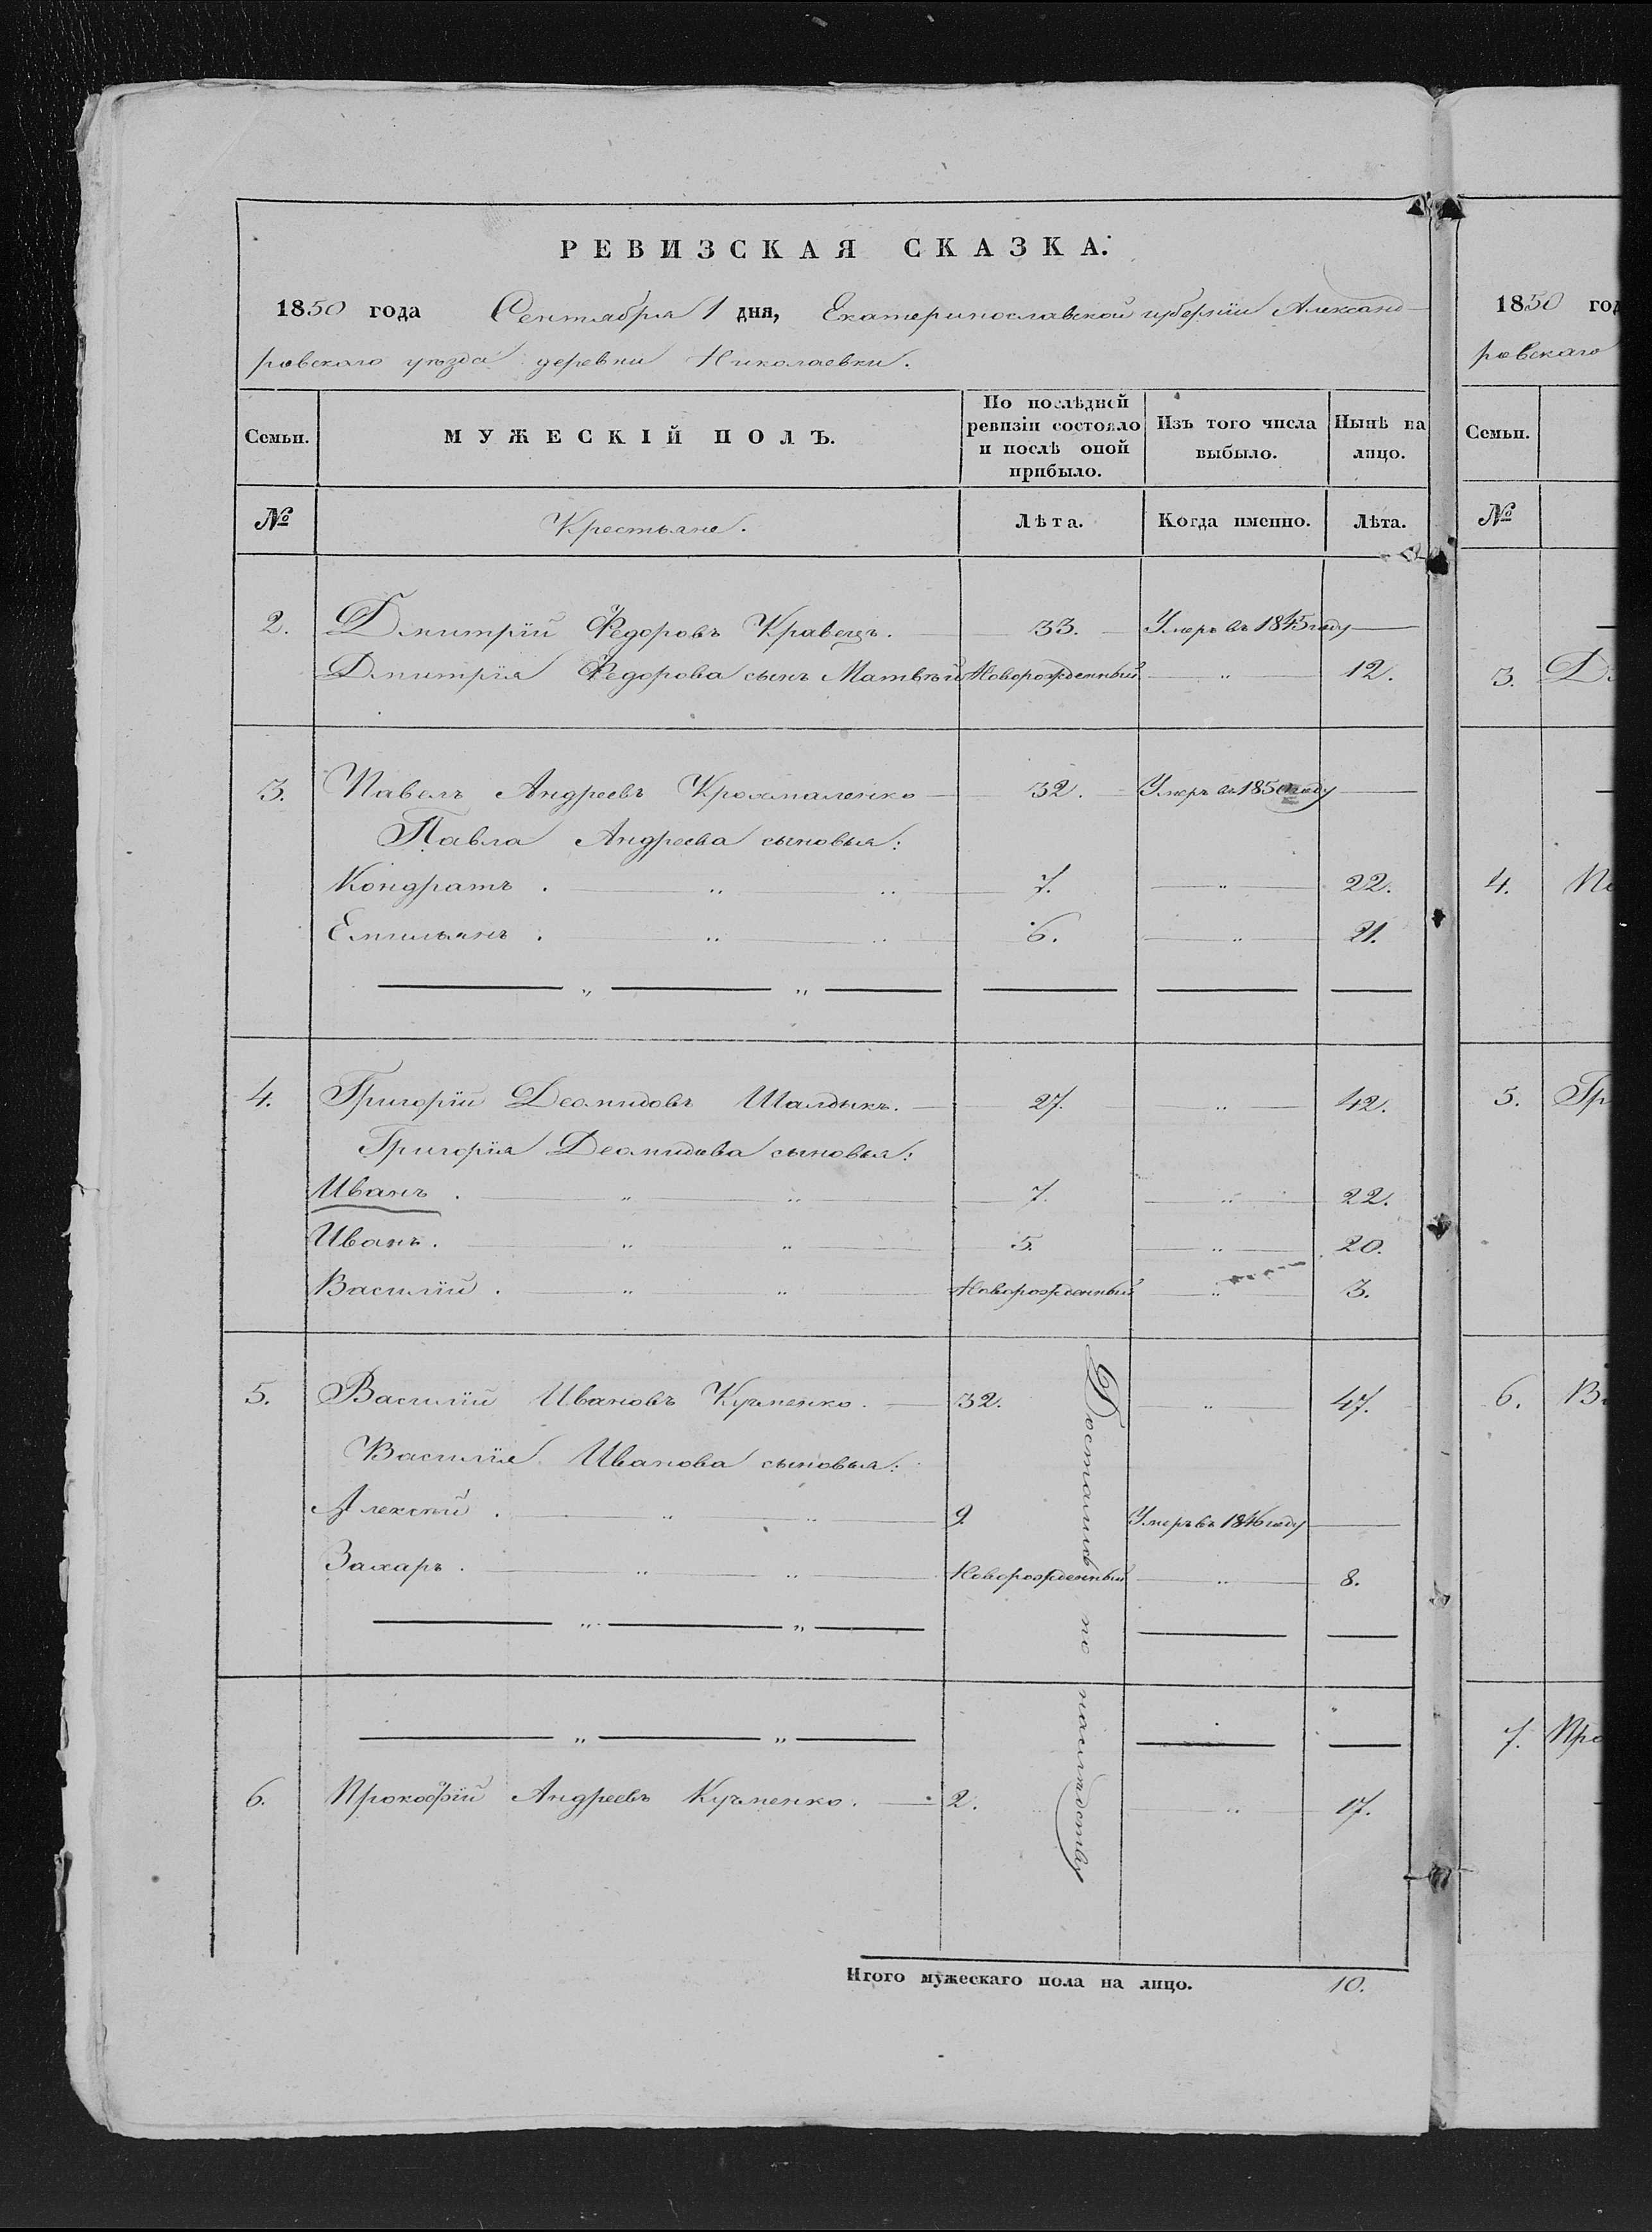 РЕВИЗСКАЯ СКАЗКА.
1850 года Сентября 1 дня, Екатеринославской губерніи Александ-
ровскаго уѣзда деревни Николаевки.
Семьи. МУЖЕСКІЙ ПОЛЪ. По послѣдней ревизіи состояло и послѣ оной прибыло. Изъ того числа выбыло. Нынѣ на лицо.
№ Крестьяне. Лѣта. Когда именно. Лѣта.
2. Дмитрій Федоровъ Кравецъ. 33. Умеръ въ 1845 году
Дмитрія Федорова сынъ Матвѣй Новорожденный " 12.
3. Павелъ Андреевъ Крохмаленко 32. Умеръ въ 1850 году
Павла Андреева сыновья:
Кондратъ . " " 7. " 22.
Емильянъ . " " 6. " 21.
4. Григорій Деомидовъ Шалдыкъ. 27. " 42.
Григорія Деомидова сыновья:
Иванъ . " " 7. " 22.
Иванъ . " " 5. " 20.
Василій . " " Новорожденный " 3.
5. Василій Ивановъ Кучменко. 32. " 47.
Василія Иванова сыновья:
Алексѣй . " " 9. Умеръ въ 1846 году
Захаръ . " " Новорожденный " 8.
6. Прокофій Андреевъ Кучменко. 2. " 17.
Достались по наслѣдству
Итого мужескаго пола на лицо. 10.
1850 год
ровскаго
Семьи.
№
3.
4.
5. Гр
6. В
7. Про